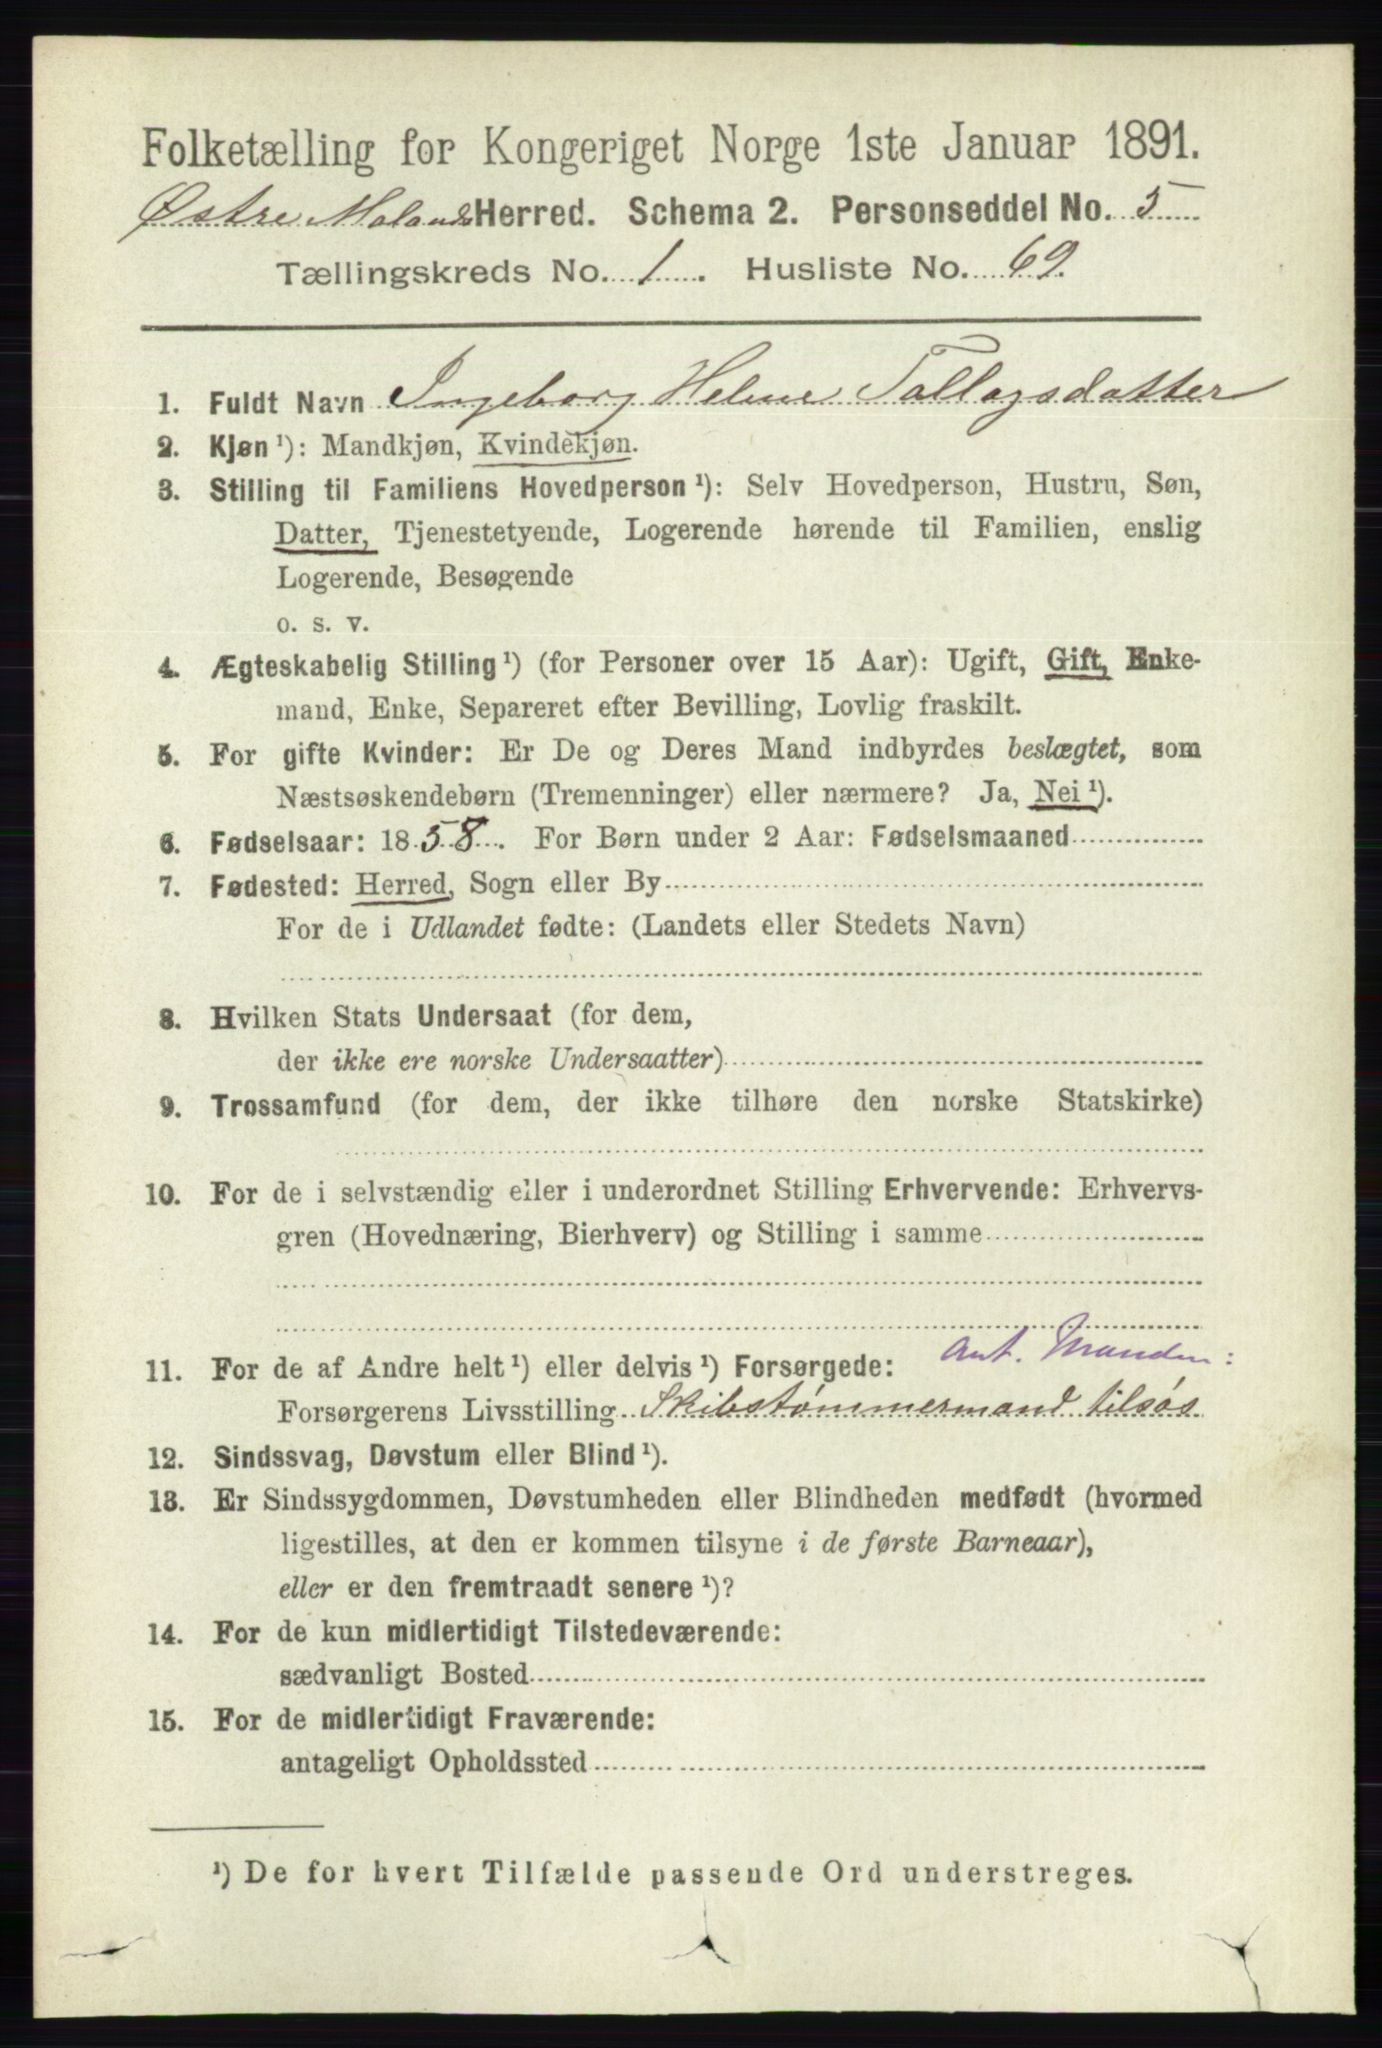 Folketælling for Kongeriget Norge 1ste Januar 1891.
Østre Molands Herred. Schema 2. Personseddel No. 5
Tællingskreds No. 1. Husliste No. 69.
1. Fuldt Navn Ingeborg Helene Tallagsdatter
2. Kjøn ¹): Mandkjøn, Kvindekjøn.
3. Stilling til Familiens Hovedperson ¹): Selv Hovedperson, Hustru, Søn,
Datter, Tjenestetyende, Logerende hørende til Familien, enslig
Logerende, Besøgende
o. s. v.
4. Ægteskabelig Stilling ¹) (for Personer over 15 Aar): Ugift, Gift, Enke-
mand, Enke, Separeret efter Bevilling, Lovlig fraskilt.
5. For gifte Kvinder: Er De og Deres Mand indbyrdes beslægtet, som
Næstsøskendebørn (Tremenninger) eller nærmere? Ja, Nei ¹).
6. Fødselsaar: 1858. For Børn under 2 Aar: Fødselsmaaned
7. Fødested: Herred, Sogn eller By
For de i Udlandet fødte: (Landets eller Stedets Navn)
8. Hvilken Stats Undersaat (for dem,
der ikke ere norske Undersaatter)
9. Trossamfund (for dem, der ikke tilhøre den norske Statskirke)
10. For de i selvstændig eller i underordnet Stilling Erhvervende: Erhvervs-
gren (Hovednæring, Bierhverv) og Stilling i samme
ant. Manden:
11. For de af Andre helt ¹) eller delvis ¹) Forsørgede:
Forsørgerens Livsstilling Skibstømmermand tilsøs
12. Sindssvag, Døvstum eller Blind ¹).
13. Er Sindssygdommen, Døvstumheden eller Blindheden medfødt (hvormed
ligestilles, at den er kommen tilsyne i de første Barneaar),
eller er den fremtraadt senere ¹)?
14. For de kun midlertidigt Tilstedeværende:
sædvanligt Bosted
15. For de midlertidigt Fraværende:
antageligt Opholdssted
¹) De for hvert Tilfælde passende Ord understreges.